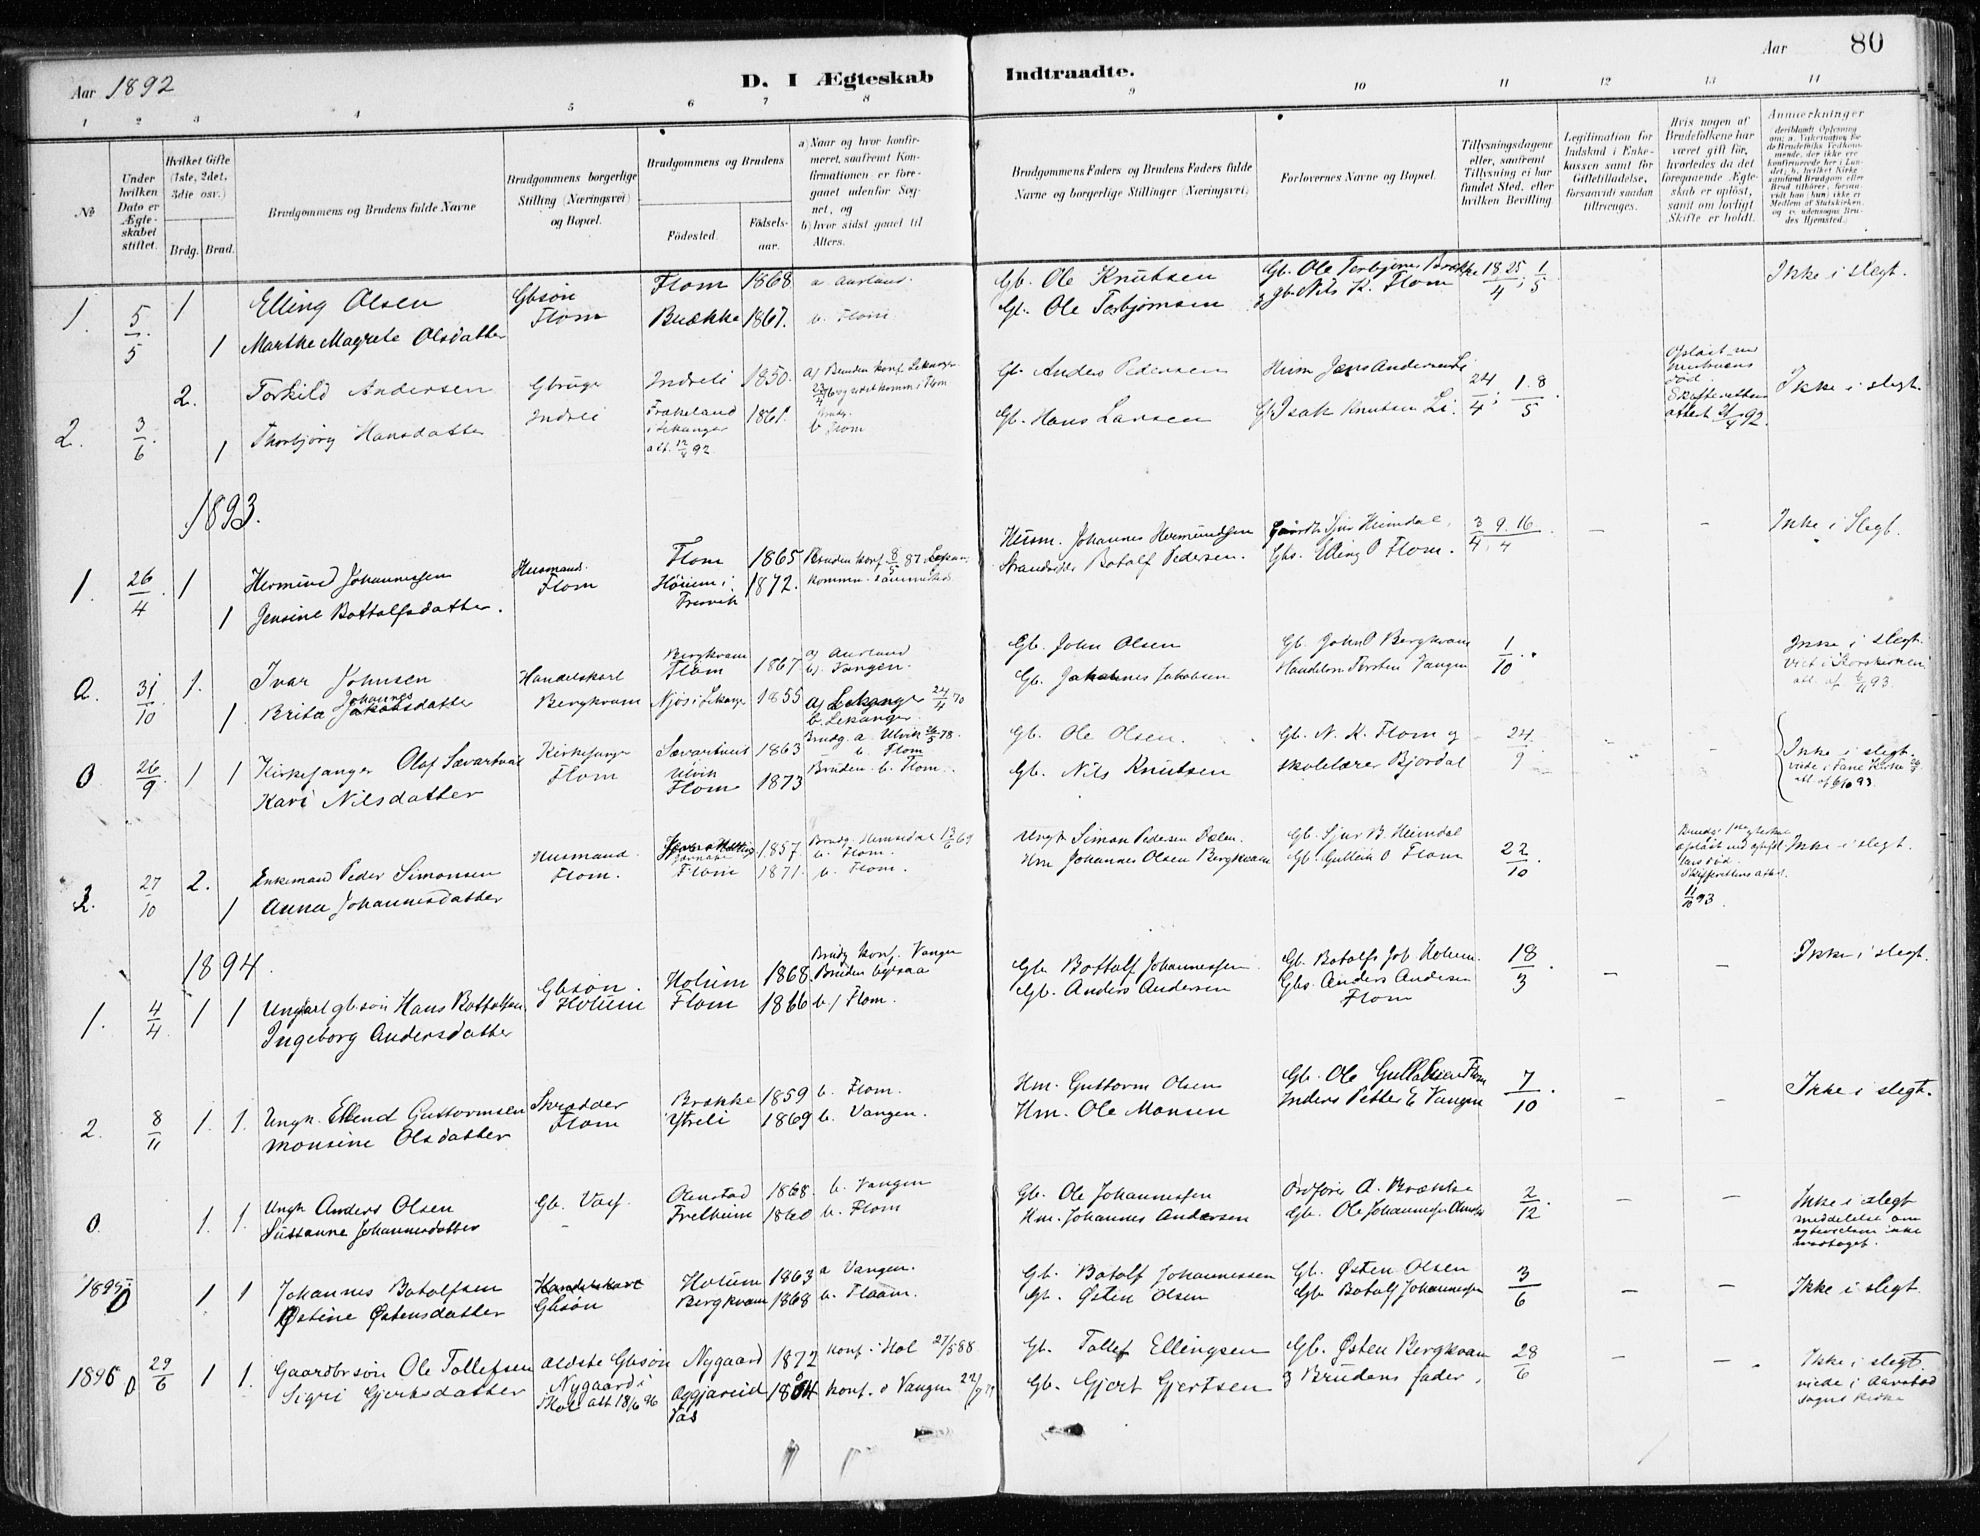 Aar 1892
D. I Ægteskab Indtraadte.
Aar 80
1 2 3 4 5 6 7 8 9 10 11 12 13 14
№
Under hvilken Dato er Ægteskabet stiftet.
Hvilket Gifte (1ste, 2det, 3die osv.)
Brdg. Brud.
Brudgommens og Brudens fulde Navne
Brudgommens borgerlige Stilling (Næringsvei) og Bopæl.
Brudgommens og Brudens
Fødested. Fødselsaar.
a) Naar og hvor konfirmeret, saafremt Konfirmationen er foregaaet udenfor Sognet, og
b) hvor sidst gaaet til Alters.
Brudgommens Faders og Brudens Faders fulde Navne og borgerlige Stillinger (Næringsvei)
Forlovernes Navne og Bopæl.
Tillysningsdagene eller, saafremt Tillysning ei har fundet Sted, efter hvilken Bevilling
Legitimation for Indskud i Enkekassen samt for Giftetilladelse, forsaavidt saadan tiltrænges.
Hvis nogen af Brudefolkene har været gift, hvorledes da det foregaaende Ægteskab er opløst, samt om lovligt Skifte er holdt.
Anmerkninger
1. 5/5 1 Elling Olsen Gbsøn Flom 1868 a Aurland. Gb. Ole Knutsen Gb. Ole Torbjørns Brække 18 25/4; 1/5 Ikke i slegt.
1 Marthe Magrete Olsdatter Flom Brække 1867. b. Flom Gb. Ole Torbjørnsen & gb. Nils K. Flom
2. 3/6 2. Torkild Andersen Gbruger Indreli 1850. a) Bruden konf. Lekanger Gb. Anders Pedersen Husm Jens Andersen Li 24/4; 1. 8/5 Ikke i slegt.
1 Thorbjørg Hansdatter Indreli i Lekanger att. 12/4 92 1861. b Flom Gb. Hans Larsen Gb. Isak Knutsen Li
1893.
1. 26/4 1 Hermund Johannessen Husmand. Flom 1865 Bruden konf 8/5 87. Husm. Johannes Hermundsen Sjur Heimdal, 3/4, 9. 16/4 – – Ikke i Slegt.
1 Jensine Bottolfsdatter. Flom Høium i Fresvik 1872. Botolf Pedersen. Gbs. Elling O Flom.
0. 31/10 1. Ivar Johnsen Handelskarl Bergkvam Flom 1867. a) Aurland b). Vangen. Gb. John Olsen Gb. John O Bergkvam 1/10 Ikke i slegt. viet i Korskirken att. af 6/11 93.
1 Brita Johannesdatter Bergkvam Njøs i Lekanger 1855 a) Lekanger 24/4 70 b. Lekanger. Gb. Johannes Jakobsen Handelsm Torsten Vangen
0 26/9 1 1 Kirkesanger Olaf Sævartveit Kirkesanger Sævartveit 1863 Brudg. a. Ulvik 26/5 78. b. Flom Gb. Ole Olsen. Gb. N. K. Flom og 24/9 Ikke i slegt. viede i Fane Kirke 26/9 att af 6/10 93.
Kari Nilsdatter Flom Ulvik Flom 1873 Bruden b. Flom. Gb. Nils Knutsen skolelærer Bjordal
2. 27/10 2. Enkemand Peder Simonsen Husmand. 1857. Brudg. Hemsedal 13/6 69 b. Flom. Ungk Simon Pedersen Dælen Gb. Sjur B. Heimdal 22/10 11/10 93. Ikke i slegt.
1 Anna Johannesdatter Flom. Flom 1871. b. Flom. Hm Johannes Olsen Bergkvam Gb. Gulleik O Flom
1894.
1. 4/4 1 1 Ungkarl gbsøn Hans Bottolfsen Gbsøn. Holum 1868. Brudg konf. Vangen Gb. Bottolf Johannessen Gb. Botolf Joh Holum 18/3 – – Ikke i slegt.
Ingeborg Andersdatter Holum Flom 1866 Bruden ligesaa b. / Flom. Gb. Anders Andersen Gbs. Anders Andersen Flom
2. 8/11 1. 1. Ungk. Ellend Guttormsen Skrædder Brække 1859 b. Flom. Hm. Guttorm Olsen Gb. Ole Gulleiksen Flom 7/10 – – Ikke i slegt.
Monsine Olsdatter Flom Ytreli 1869 b. Vangen. Hm. Ole Monsen Anders Petter E Vangen
0. 1. 1. Ungk Anders Olsen Gb. Olenstad 1868. b. Vangen Gb. Ole Johannessen Ordfører A. Brække 2/12 – – Ikke i slegt meddelelse om ikke modtaget.
Sussanne Johannesdatter – Fretheim 1860 b. Flom Hm. Johannes Andersen Gb. Ole Johannessen
1895 0 1 1 Johannes Botolfsen Handelskarl Holum 1863 a Vangen. Gb. Botolf Johannessen Gb. Østen Olsen 3/6 – – Ikke i slegt.
Østine Østensdatter Gbsøn Bergkvam 1868 b. Flaam. Gb. Østen Olsen Gb Botolf Johannessen
1896 0 29/6 1 1. Gaardbrsøn Ole Tollefsen ældste Gbsøn Nygaard 1872 konf. i Hol 27/5 88 Gb. Tollef Ellingsen Gb. Østen Bergkvam 28/6 – – Ikke i slegt viede i Aarstad sogns kirke
Sigri Gjertsdatter Nygaard i Hol att 18/6 96 Vas konf. i Vangen Gb. Gjert Gjertsen & Brudens fader.